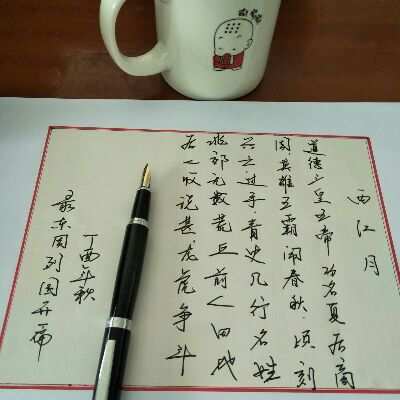 西江月
道德三皇五帝功名夏后商
周英雄五霸闹春秋顷刻
兴亡过手青史几行名姓
北邙无数荒丘前人田地
后人收说甚龙虎争斗
丁酉年秋
录东周列国开篇